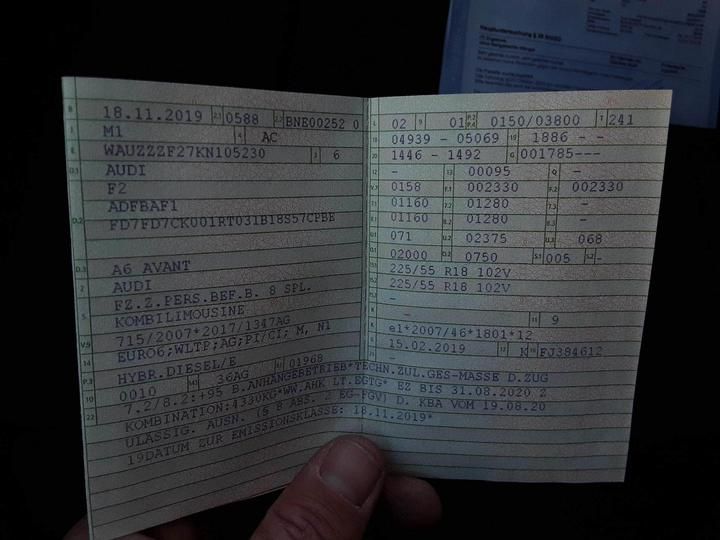 B 18.11.2019 2.1 0588 2.2 BNE00252 0
J M1 4 AC
E WAUZZZF27KN105230 3 6
D.1 AUDI
F2
D.2 ADFBAF1
FD7FD7CK001RT031B18S57CPBE
D.3 A6 AVANT
2 AUDI
5 FZ.Z.PERS.BEF.B. 8 SPL.
KOMBILIMOUSINE
V.9 715/2007*2017/1347AG
14 EURO6;WLTP;AG;PI/CI; M, N1
P.3 HYBR.DIESEL/E
10 0010 14.1 36AG P.1 01968
22 7.2/8.2:+95 B.ANHÄNGEBETRIEB*TECHN.ZUL.GES-MASSE D.ZUG
KOMBINATION:4330KG*WW.AHK LT.EGTG* EZ BIS 31.08.2020 Z
ULÄSSIG. AUSN. (§ 8 ABS. 2 EG-FGV) D. KBA VOM 19.08.20
19DATUM ZUR EMISSIONSKLASSE: 18.11.2019*
L 02 9 01 P.2 P.4 0150/03800 T 241
18 04939 - 05069 19 1886 - -
20 1446 - 1492 G 001785---
12 - 13 00095 Q -
V.7 0158 F.1 002330 F.2 002330
7.1 01160 7.2 01280 7.3 -
8.1 01160 8.2 01280 8.3 -
U.1 071 U.2 02375 U.3 068
O.1 02000 O.2 0750 S.1 005 S.2 -
15.1 225/55 R18 102V
15.2 225/55 R18 102V
15.3 -
R - 11 9
K e1*2007/46*1801*12
6 15.02.2019 17 K 16 FJ384612
21 -
Hauptuntersuchung § 29 StVZO